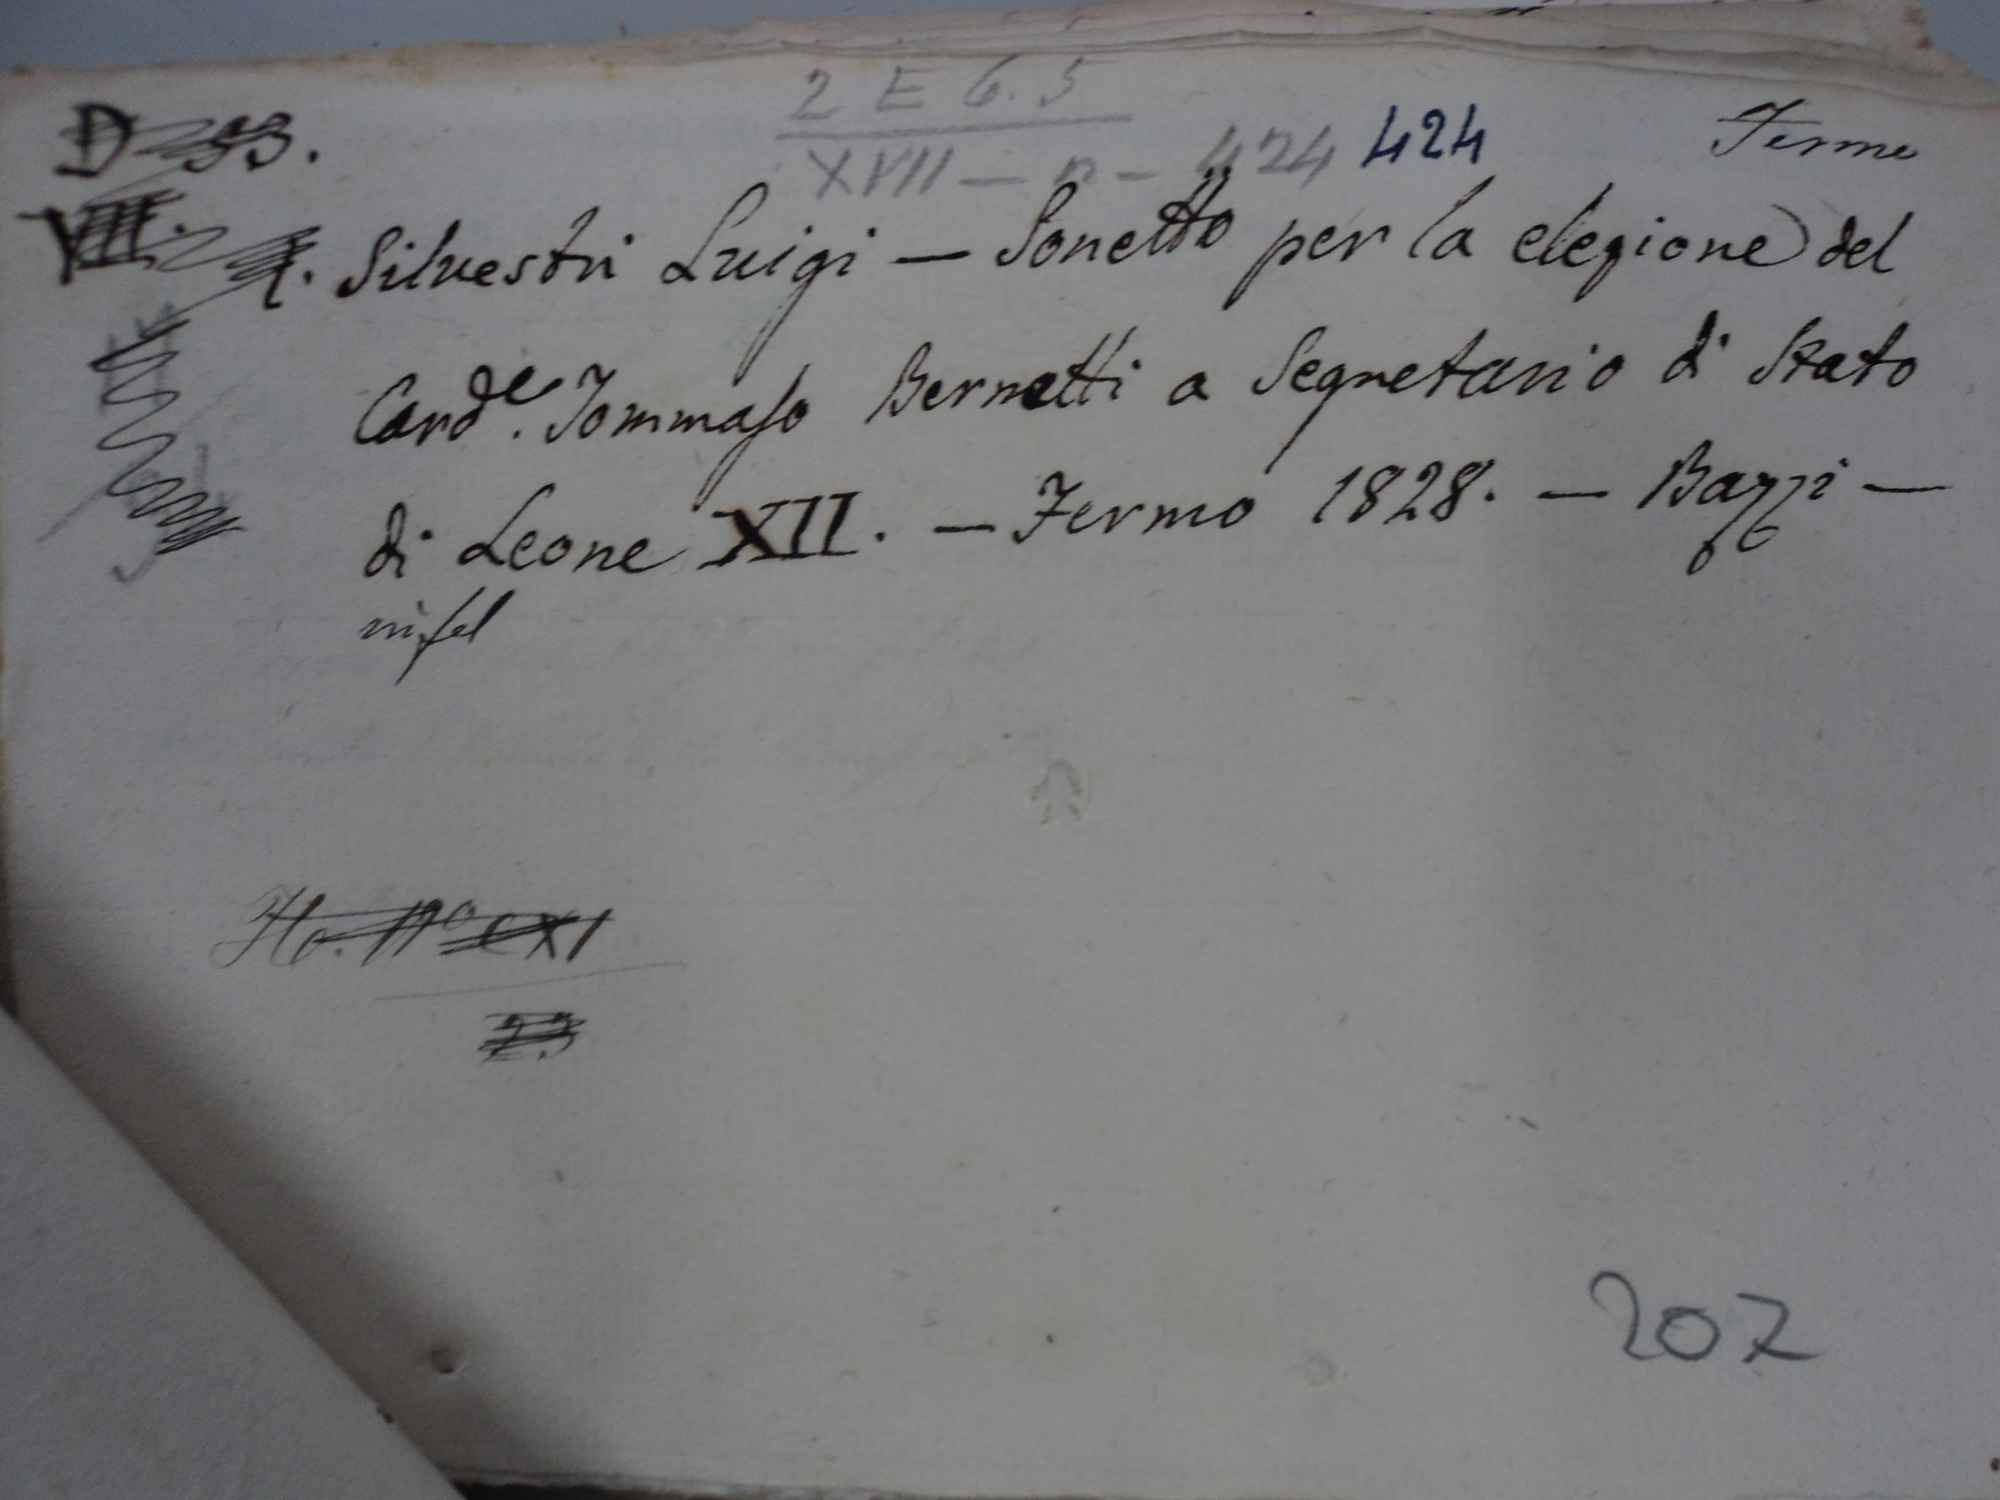 2 E 6.5
D 53.
XVII - n - 424 424 Fermo
VII.
1. Silvestri Luigi — Sonetto per la elezione del
Card.e Tommaso Bernetti a Segretario di Stato
di Leone XII. — Fermo 1828. — Bazzi —
in fol
N° CXI
207